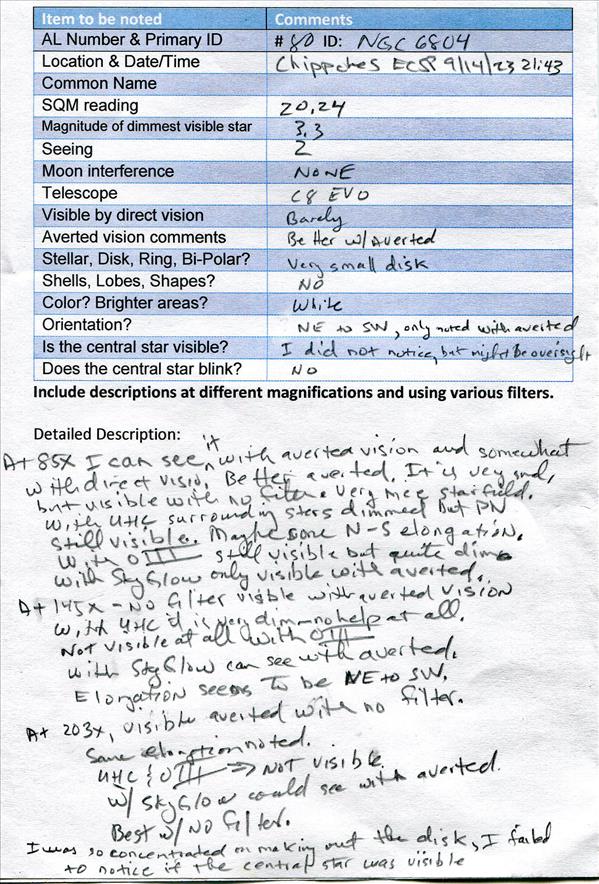 Item to be noted Comments
AL Number & Primary ID # 80 ID: NGC 6804
Location & Date/Time Chippokes ECSP 9/14/23 21:43
Common Name
SQM reading 20.24
Magnitude of dimmest visible star 3.3
Seeing 2
Moon interference NONE
Telescope C8 EVO
Visible by direct vision Barely
Averted vision comments Better w/Averted
Stellar, Disk, Ring, Bi-Polar? Very small disk
Shells, Lobes, Shapes? NO
Color? Brighter areas? White
Orientation? NE to SW, only noted with averted
Is the central star visible? I did not notice, but might be oversight
Does the central star blink? NO
Include descriptions at different magnifications and using various filters.
Detailed Description:
At 85X I can see it with averted vision and somewhat
with direct vision, Better averted. It is very small,
but visible with no filter. Very nice starfield.
With UHC surrounding stars dimmed but PN
still visible. Maybe some N-S elongation.
With OIII still visible but quite dim.
With SkyGlow only visible with averted.
At 145x - No filter visible with averted vision
With UHC it is very dim - no help at all.
Not visible at all with OIII
With SkyGlow can see with averted.
Elongation seems to be NE to SW.
At 203x, visible averted with no filter.
Same elongtion noted.
UHC & OIII => Not visible.
W/ SkyGlow could see with averted.
Best w/ NO filter.
I was so concentrated on making out the disk, I failed
to notice if the central star was visible